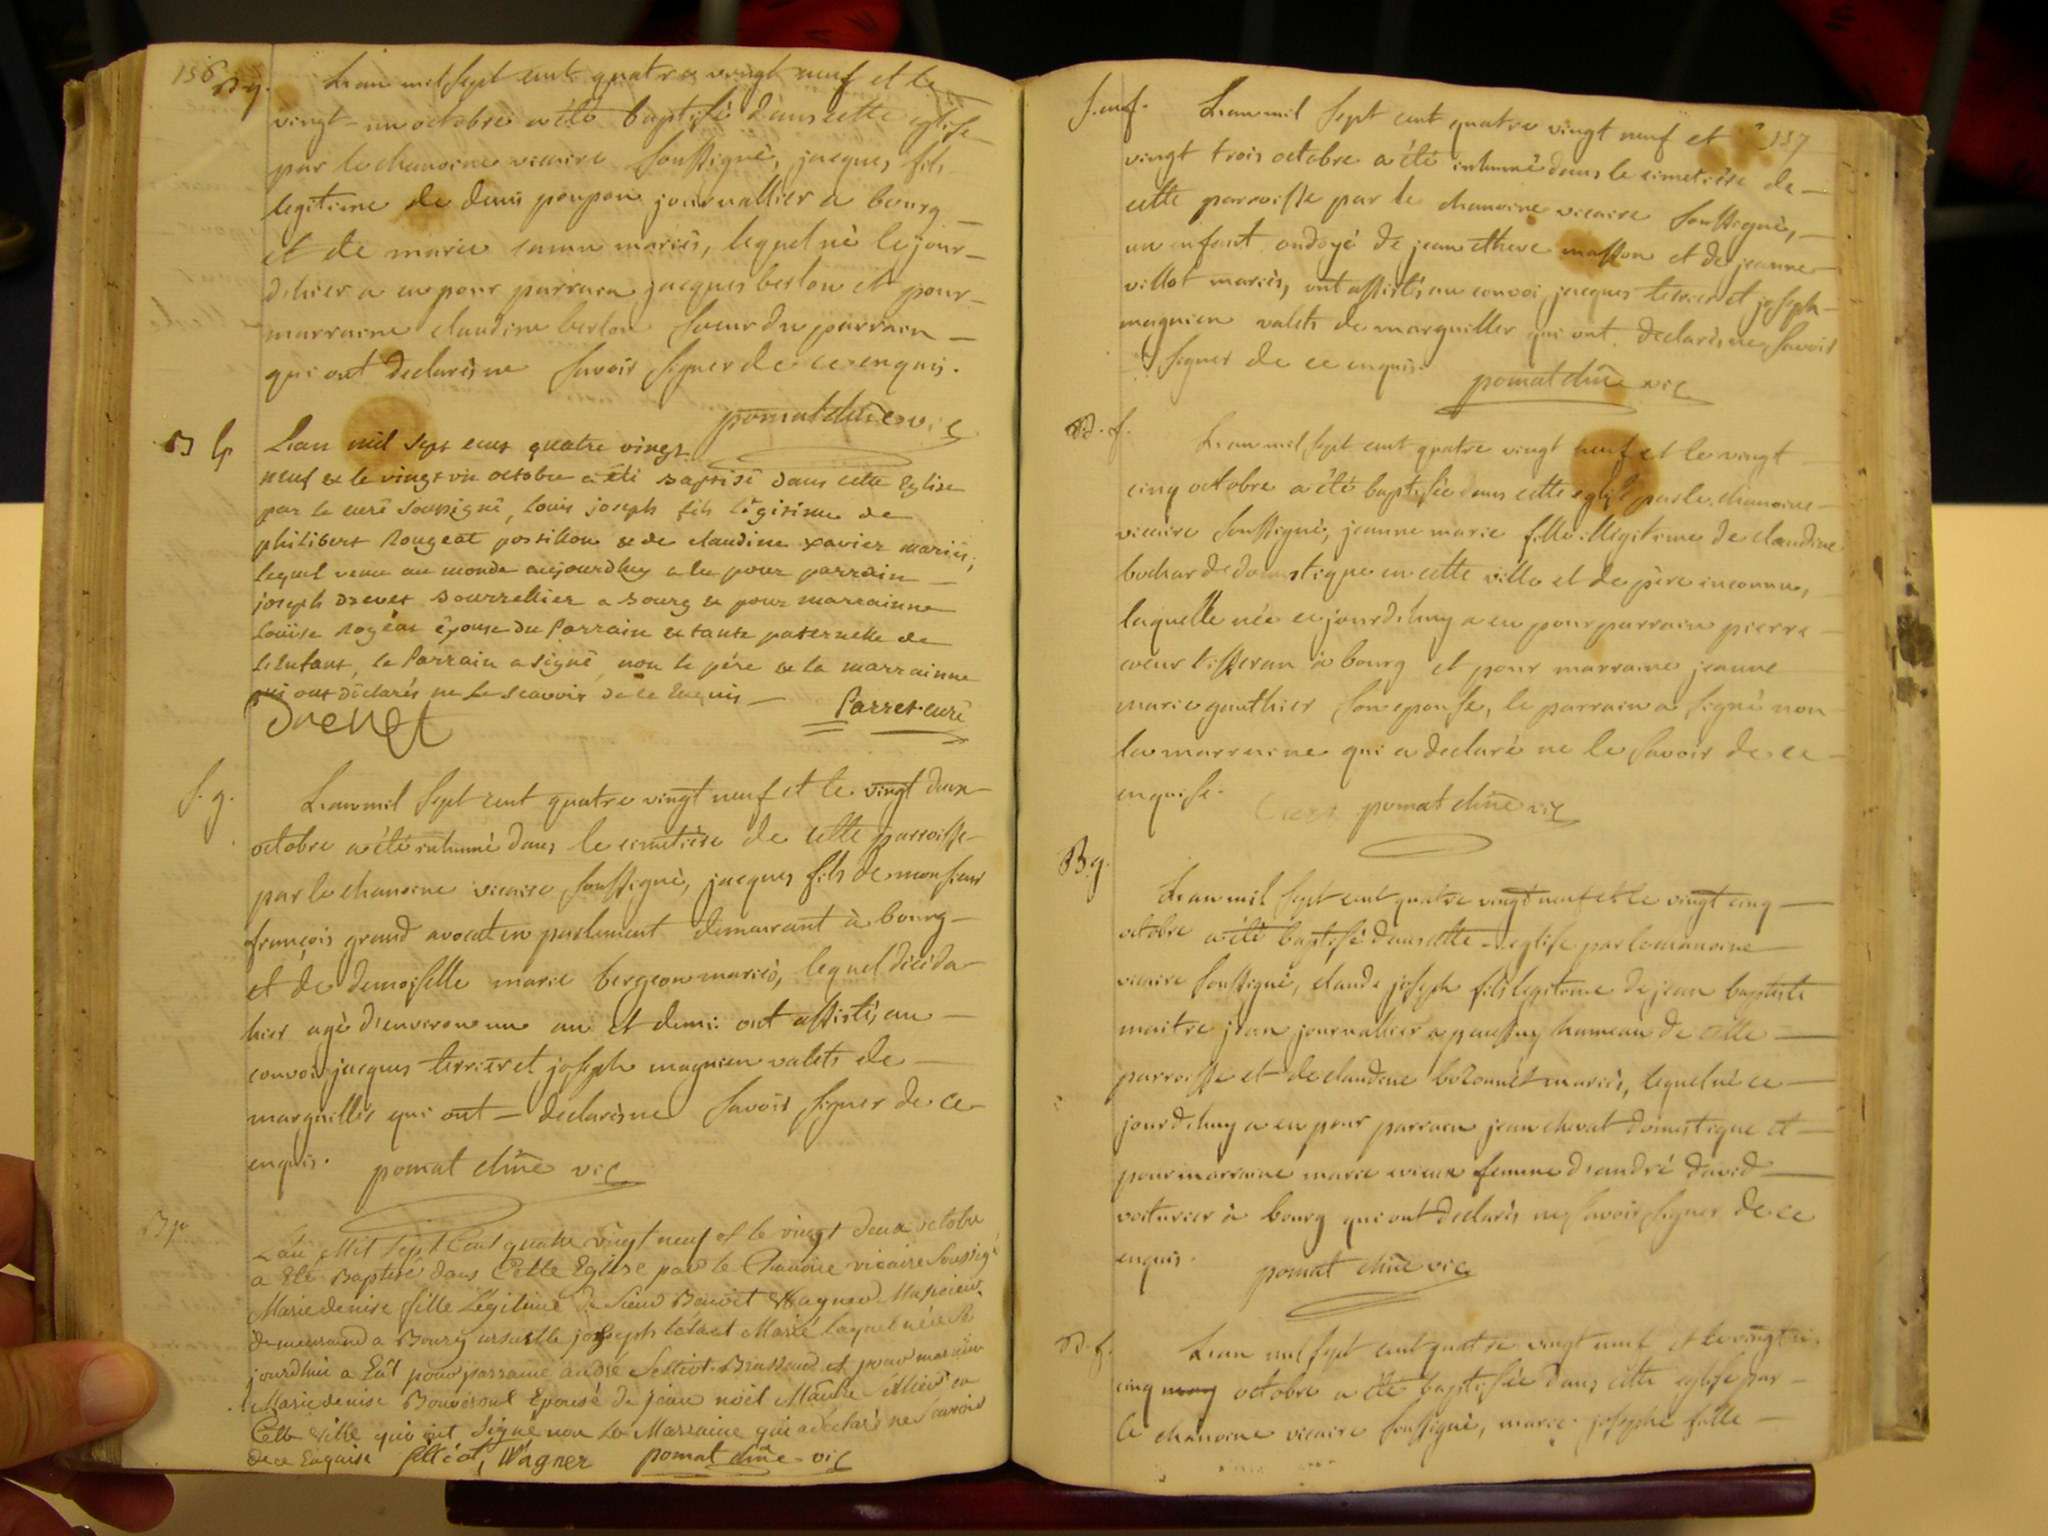 156
B g. L'an mil sept cent quatre vingt neuf et le
vingt-un octobre a été baptisé dans cette eglise
par le chanoine vicaire soussigné, jacques fils
legitime de denis poupon journallier a bourg
et de marie mariés, lequel né le jour
d'hier a eu pour parrain jacques berlon et pour
marraine claudine berlon soeur du parrain
qui ont declarés ne savoir signer de ce enquis.
pomat chne vic
B g L'an mil sept cent quatre vingt
neuf & le vingt un octobre a été baptisé dans cette Eglise
par le curé soussigné, louis joseph fils légitime de
philibert Rougeat postillon & de claudine xavier mariés,
lequel venu au monde aujourdhuy a eu pour parrain
joseph drevet bourrellier a bourg & pour marrainne
Louise Rogéat épouse du Parrain & tante paternelle de
l'enfant, le Parrain a signé, non le pére & la marrainne
qui ont déclarés ne le scavoir de ce Enquis
Drevet Parret curé
S. g. L'an mil sept cent quatre vingt neuf et le vingt deux
octobre a été inhumé dans le cimetière de cette parroisse
par le chanoine vicaire soussigné, jacques fils de monsieur
françois grand avocat en parlement demeurant à bourg
et de demoiselle marie bergeon mariés, lequel décéda
hier agé d'environ un an et demi: ont assistés au
convoi jacques terrier et joseph magnien valets de
marguillier qui ont declarés ne savoir signer de ce
enquis. pomat chne vic
L'an Mil Sept Cent quatre Vingt neuf et le vingt deux octobre
a Eté Baptisé dans Cette Eglise par le Chanoine vicaire Soussigé
Marie denise fille Légitime de Sieur Benoit Wagner Musicien
demeurand a Bourg Marié laquel née
jourdhui a Eut pour parrain andré et pour maraine
Marie denise Epouse de jean noël Maitre Sellier en
Cette ville qui ont Signé non La Marraine qui a declaré ne Scavoir
de ce Enquise Wagner pomat chne vic
157
S. enf. L'an mil sept cent quatre vingt neuf et
vingt trois octobre a été inhumé dans le cimetière de
cette parroisse par le chanoine vicaire soussigné,
un enfant ondoyé de jean masson et de jeanne
villot mariés, ont assistés au convoi jacques terrier et joseph
magnien valets de marguillier qui ont declarés ne savoir
signer de ce enquis. pomat chne vic
B. f. L'an mil sept cent quatre vingt neuf et le vingt
cinq octobre a été baptisée dans cette eglise par le chanoine
vicaire soussigné, jeanne marie fille illégitime de claudine
bochard domestique en cette ville et de père inconnu,
laquelle née ce jourd'huy a eu pour parrain pierre
coeur tisseran à bourg et pour marraine jeanne
marie gauthier son epouse, le parrain a signé non
la marraine qui a declaré ne le savoir de ce
enquise. Coeur pomat chne vic
B. g. L'an mil sept cent quatre vingt neuf et le vingt cinq
octobre a été baptisé dans cette eglise par le chanoine
vicaire soussigné, claude joseph fils legitime de jean baptiste
maitre jean journallier a hameau de cette
parroisse et de claudine bozonnet mariés, lequel né ce
jourd'huy a eu pour parrain jean chevat domestique et
pour marraine marie vieux femme d'andré david
voiturier à bourg qui ont declarés ne savoir signer de ce
enquis. pomat chne vic
B. f. L'an mil sept cent quatre vingt neuf et le vingt
cinq octobre a été baptisée dans cette eglise par
le chanoine vicaire soussigné, marie josephe fille